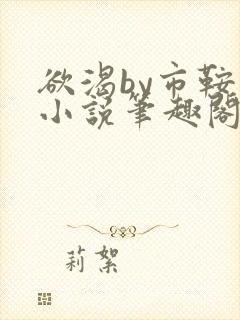 欲渴by市鞍
小说笔趣阁
莉絮